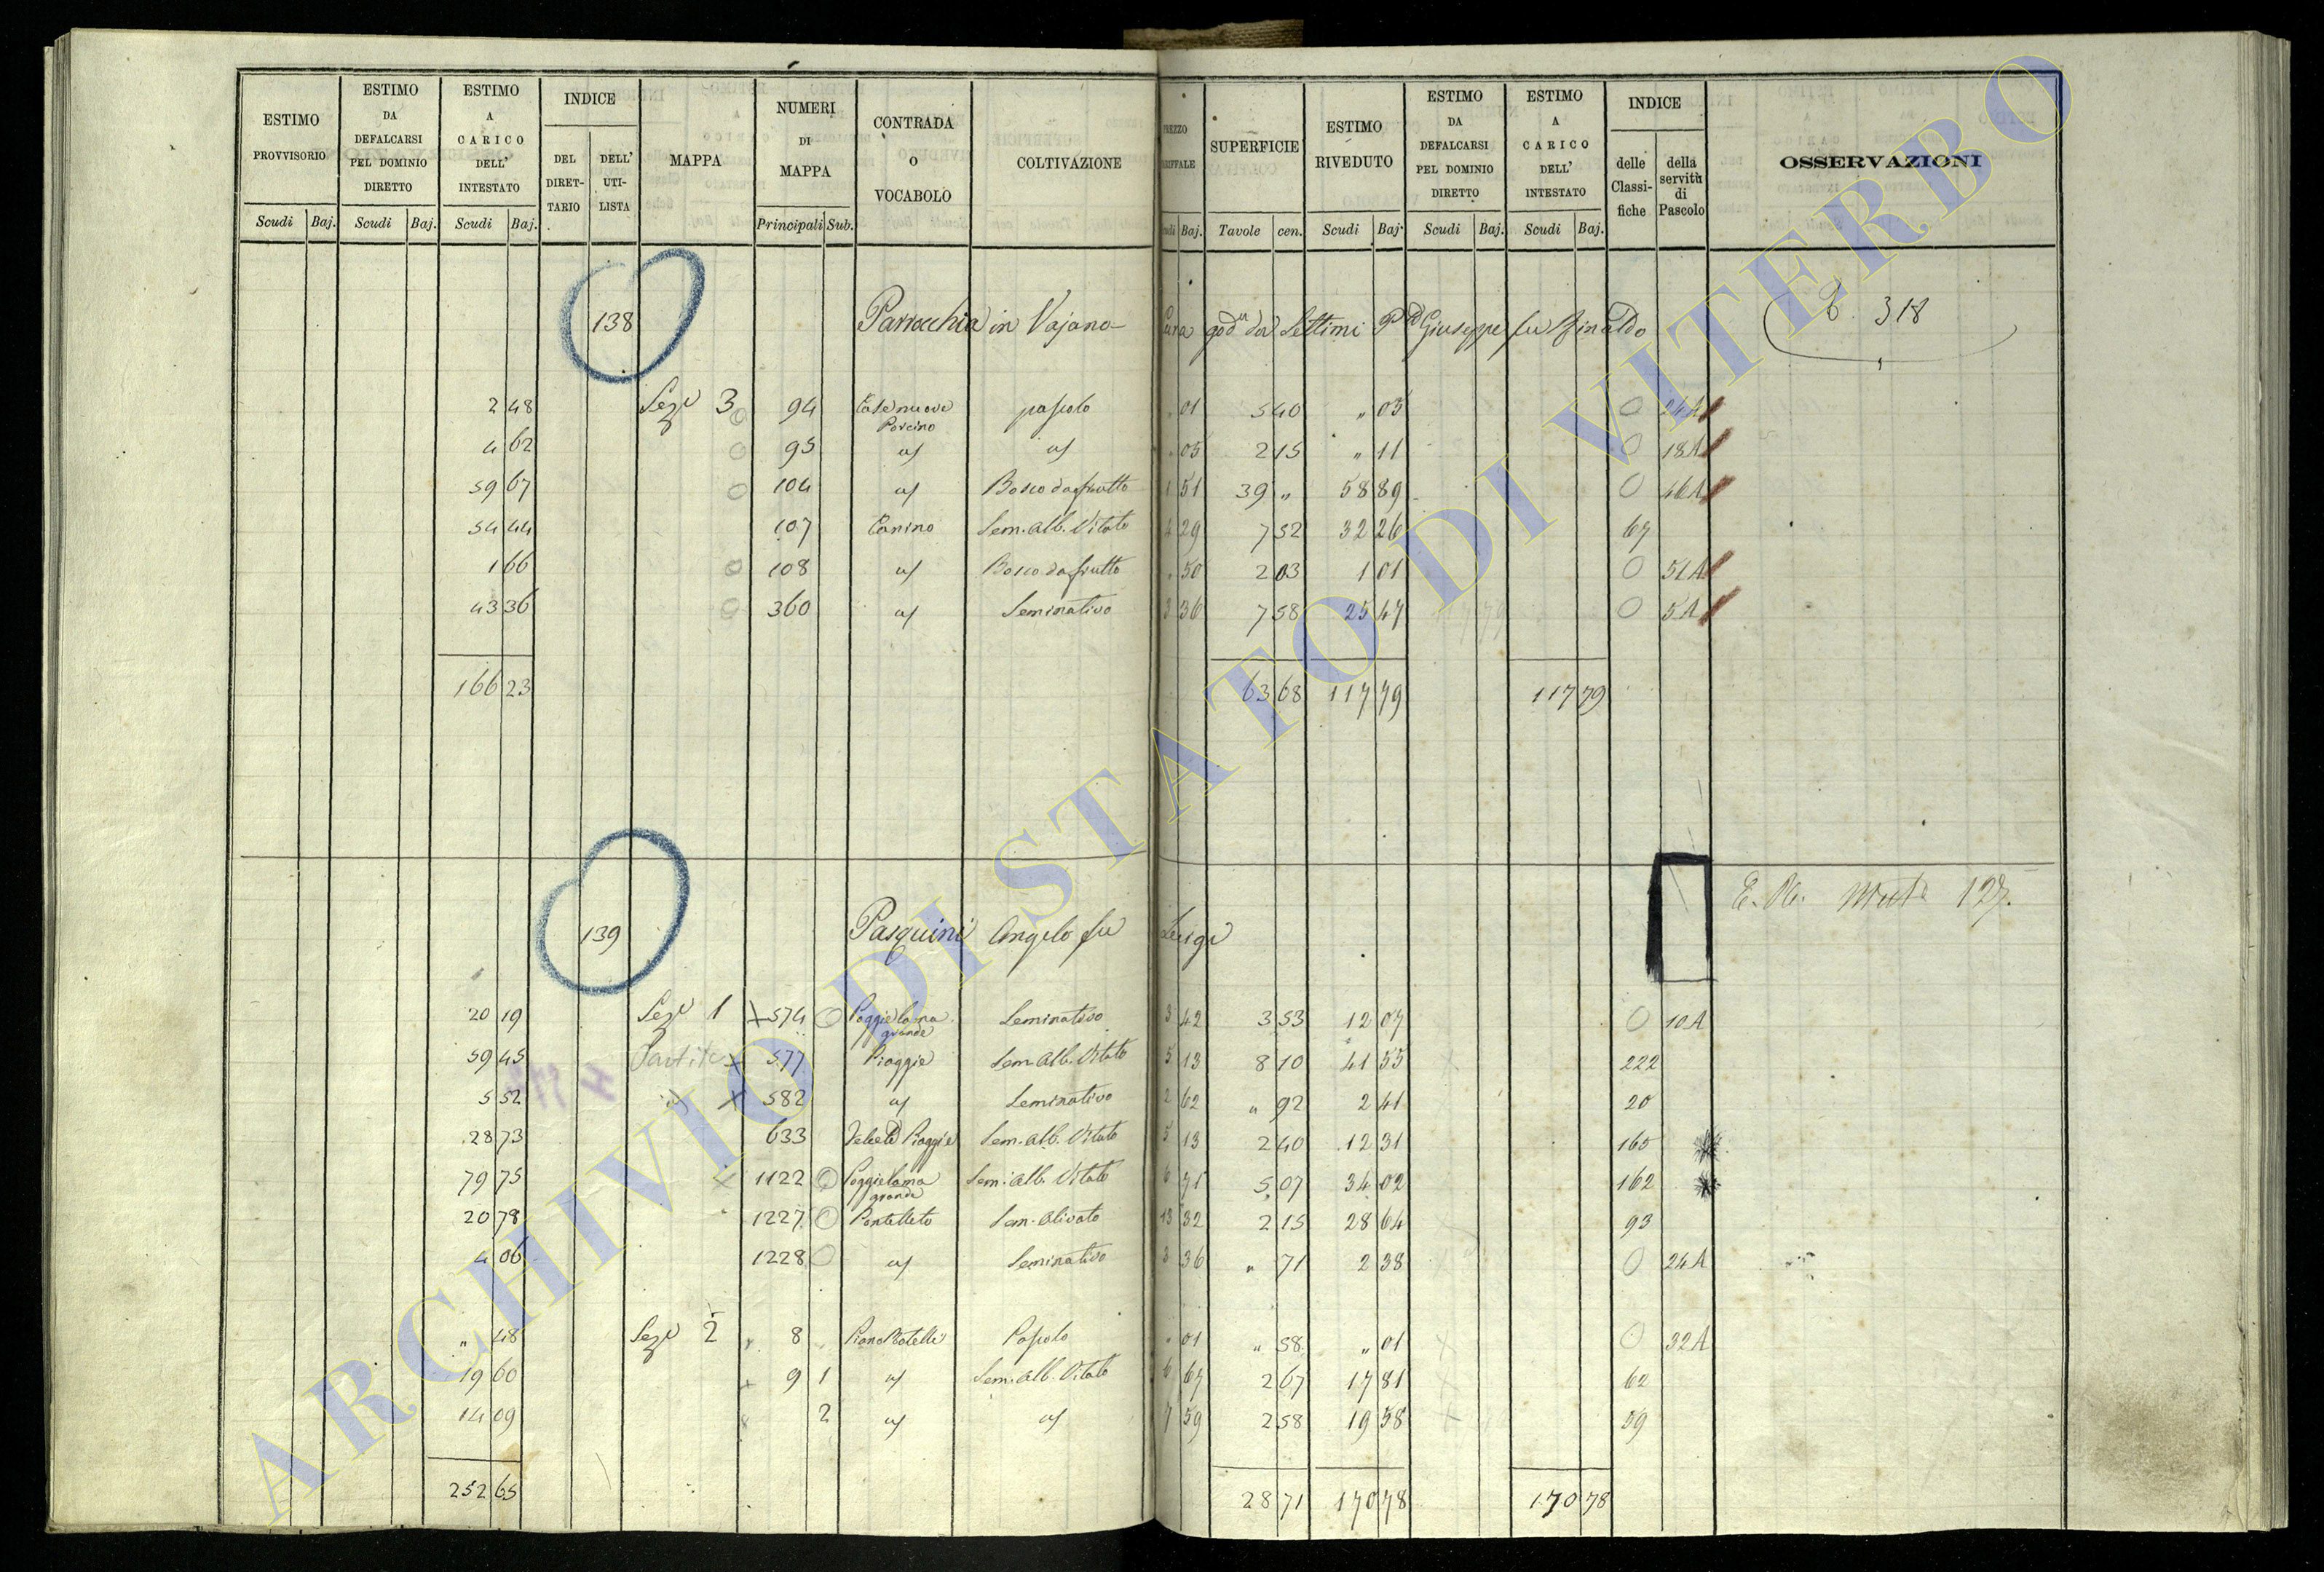 ESTIMO PROVVISORIO | ESTIMO DA DEFALCARSI PEL DOMINIO DIRETTO | ESTIMO A CARICO DELL' INTESTATO | INDICE | MAPPA | NUMERI DI MAPPA | CONTRADA O VOCABOLO | COLTIVAZIONE | SUPERFICIE | ESTIMO RIVEDUTO | ESTIMO DA DEFALCARSI PEL DOMINIO DIRETTO | ESTIMO A CARICO DELL' INTESTATO | INDICE | OSSERVAZIONI
DEL DIRETTARIO | DELL' UTILISTA | delle Classifiche | della servitù di Pascolo
Scudi | Baj. | Scudi | Baj. | Scudi | Baj. | Principali | Sub. | Baj. | Tavole | cen. | Scudi | Baj. | Scudi | Baj. | Scudi | Baj.
138 Parrocchia in Vajano - Cura god.ta dal Settimi Giuseppe fu Rinaldo 318
2 48 Sez.e 3 94 Casenuove Porcino pascolo " 01 5 40 " 03 24A
4 62 95 " 05 2 15 " 11 18A
59 67 104 Bosco da frutto 1 51 39 " 58 89 46A
54 44 107 Canino Sem. Alb. Vitato 4 29 7 52 32 26 67
1 66 108 Bosco da frutto " 50 2 03 1 01 51A
43 36 360 Seminativo 3 36 7 58 25 47 5A
166 23 63 68 117 79 117 79
139 Pasquini Angelo fu Luigi 127.
20 19 Sez.e 1 574 Poggielama grande Seminativo 3 42 3 53 12 07 10A
59 45 577 Piaggie Sem. Alb. Vitato 5 13 8 10 41 55 222
5 52 582 Seminativo 2 62 " 92 2 41 20
28 73 633 Piaggie Sem. Alb. Vitato 5 13 2 40 12 31 165
79 75 1122 Poggielama grande Sem. Alb. Vitato 6 71 5 07 34 02 162
20 78 1227 Pontelleto Sem. Olivato 13 32 2 15 28 64 93
4 06 1228 Seminativo 3 36 " 71 2 38 24A
" 48 Sez.e 2 8 Pascolo " 01 " 58 " 01 32A
19 60 9 1 Sem. Alb. Vitato 6 67 2 67 17 81 62
14 09 2 7 59 2 58 19 58 59
252 65 28 71 170 78 170 78
ARCHIVIO DI STATO DI VITERBO